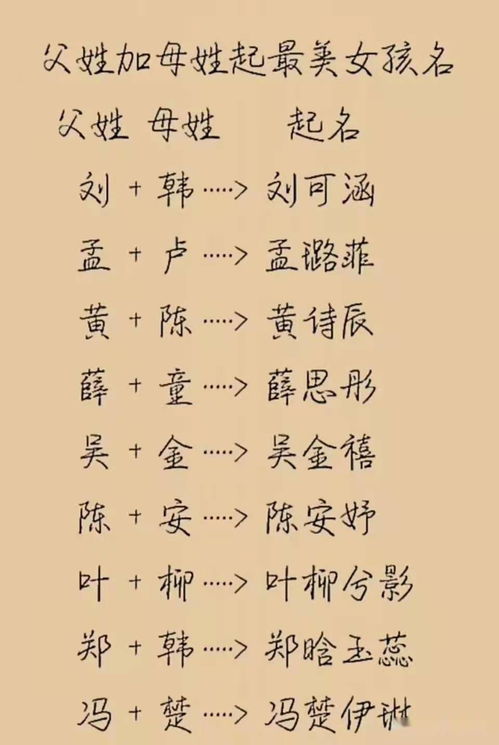 父姓加母姓起最美女孩名
父姓 母姓 起名
刘 + 韩 ·····> 刘可涵
孟 + 卢 ·····> 孟璐菲
黄 + 陈 ·····> 黄诗辰
薛 + 童 ·····> 薛思彤
吴 + 金 ·····> 吴金禧
陈 + 安 ·····> 陈安妤
叶 + 柳 ·····> 叶柳兮影
郑 + 韩 ·····> 郑晗玉蕊
冯 + 楚 ·····> 冯楚伊琳